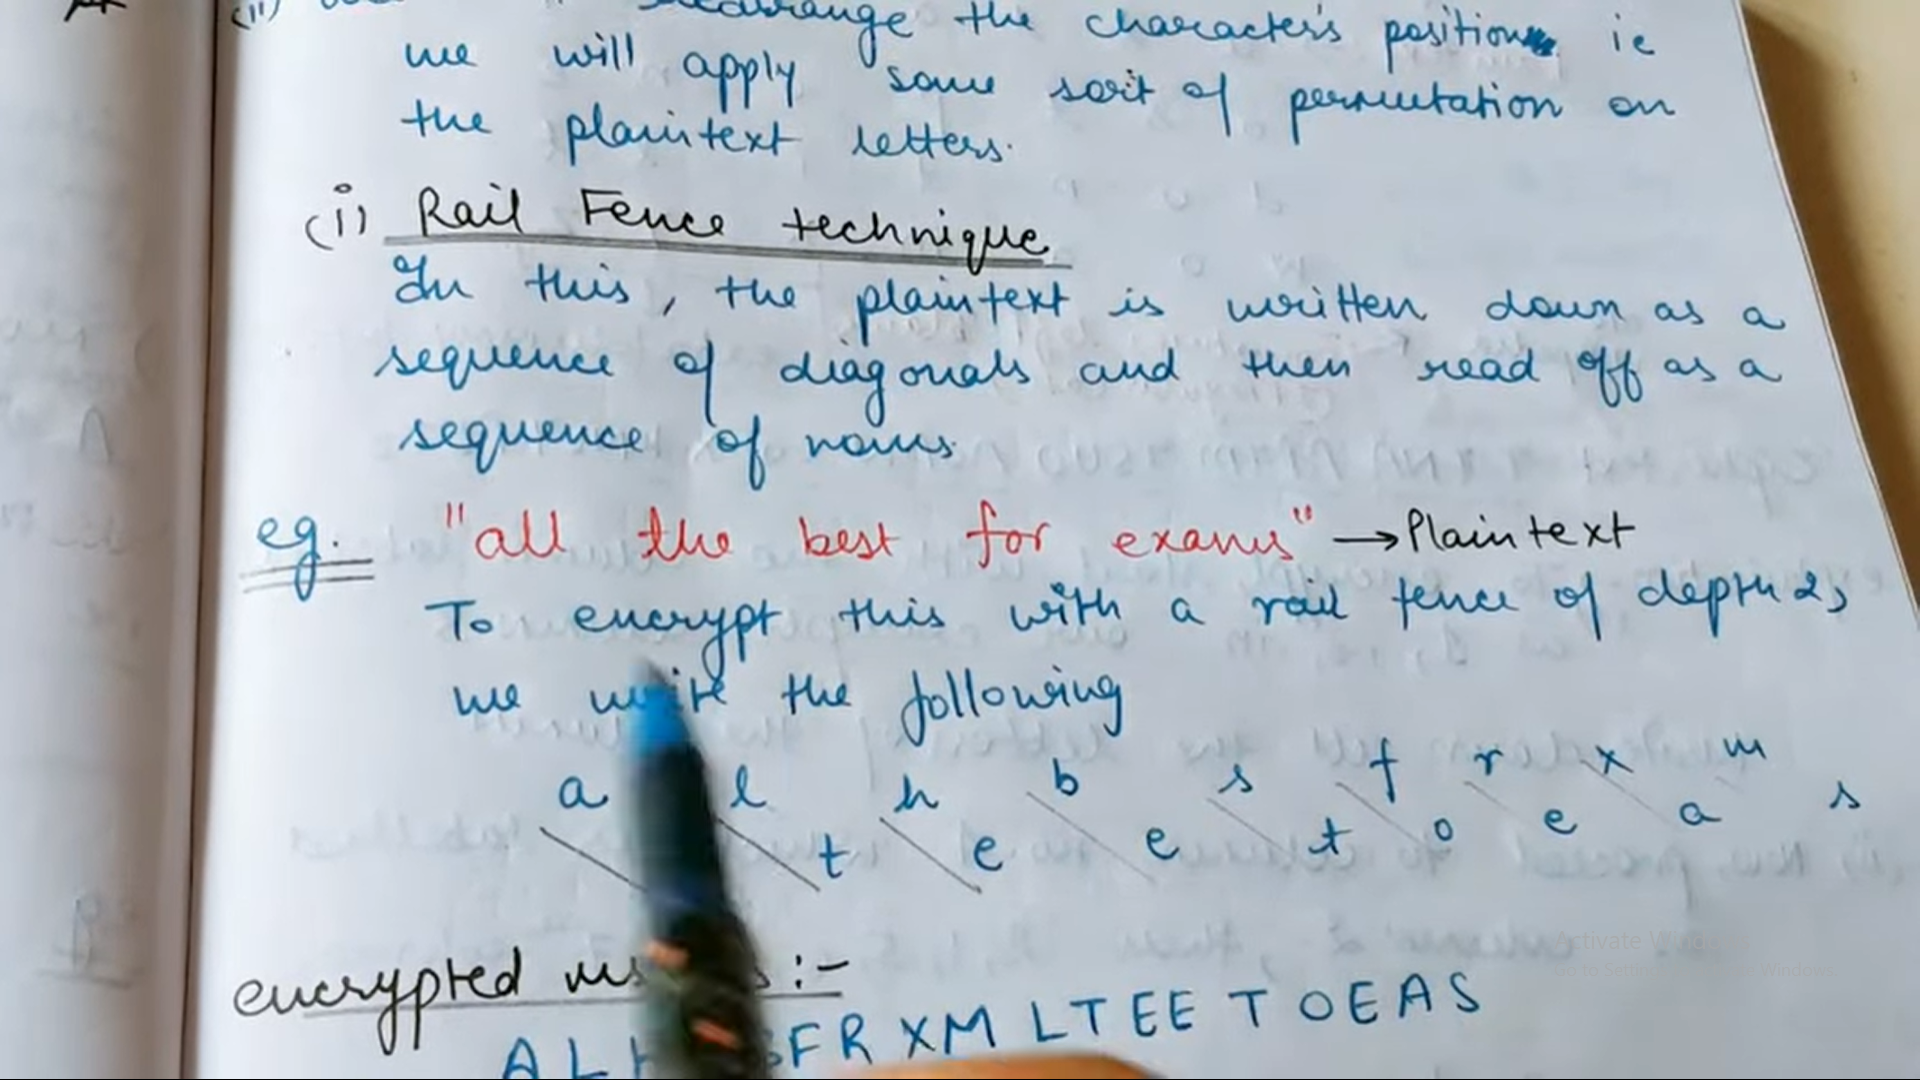 (ii) rearrange the character's position ie
we will apply some sort of permutation on
the plaintext letters.
(i) Rail Fence technique
In this, the plaintext is written down as a
sequence of diagonals and then read off as a
sequence of rows.
eg. "all the best for exams" → Plaintext
To encrypt this with a rail fence of depth 2,
we write the following
a l h b s f r x m
t e e t o e a s
encrypted :-
AL SFRXM LTEETOEAS
Activate
Go to Windows